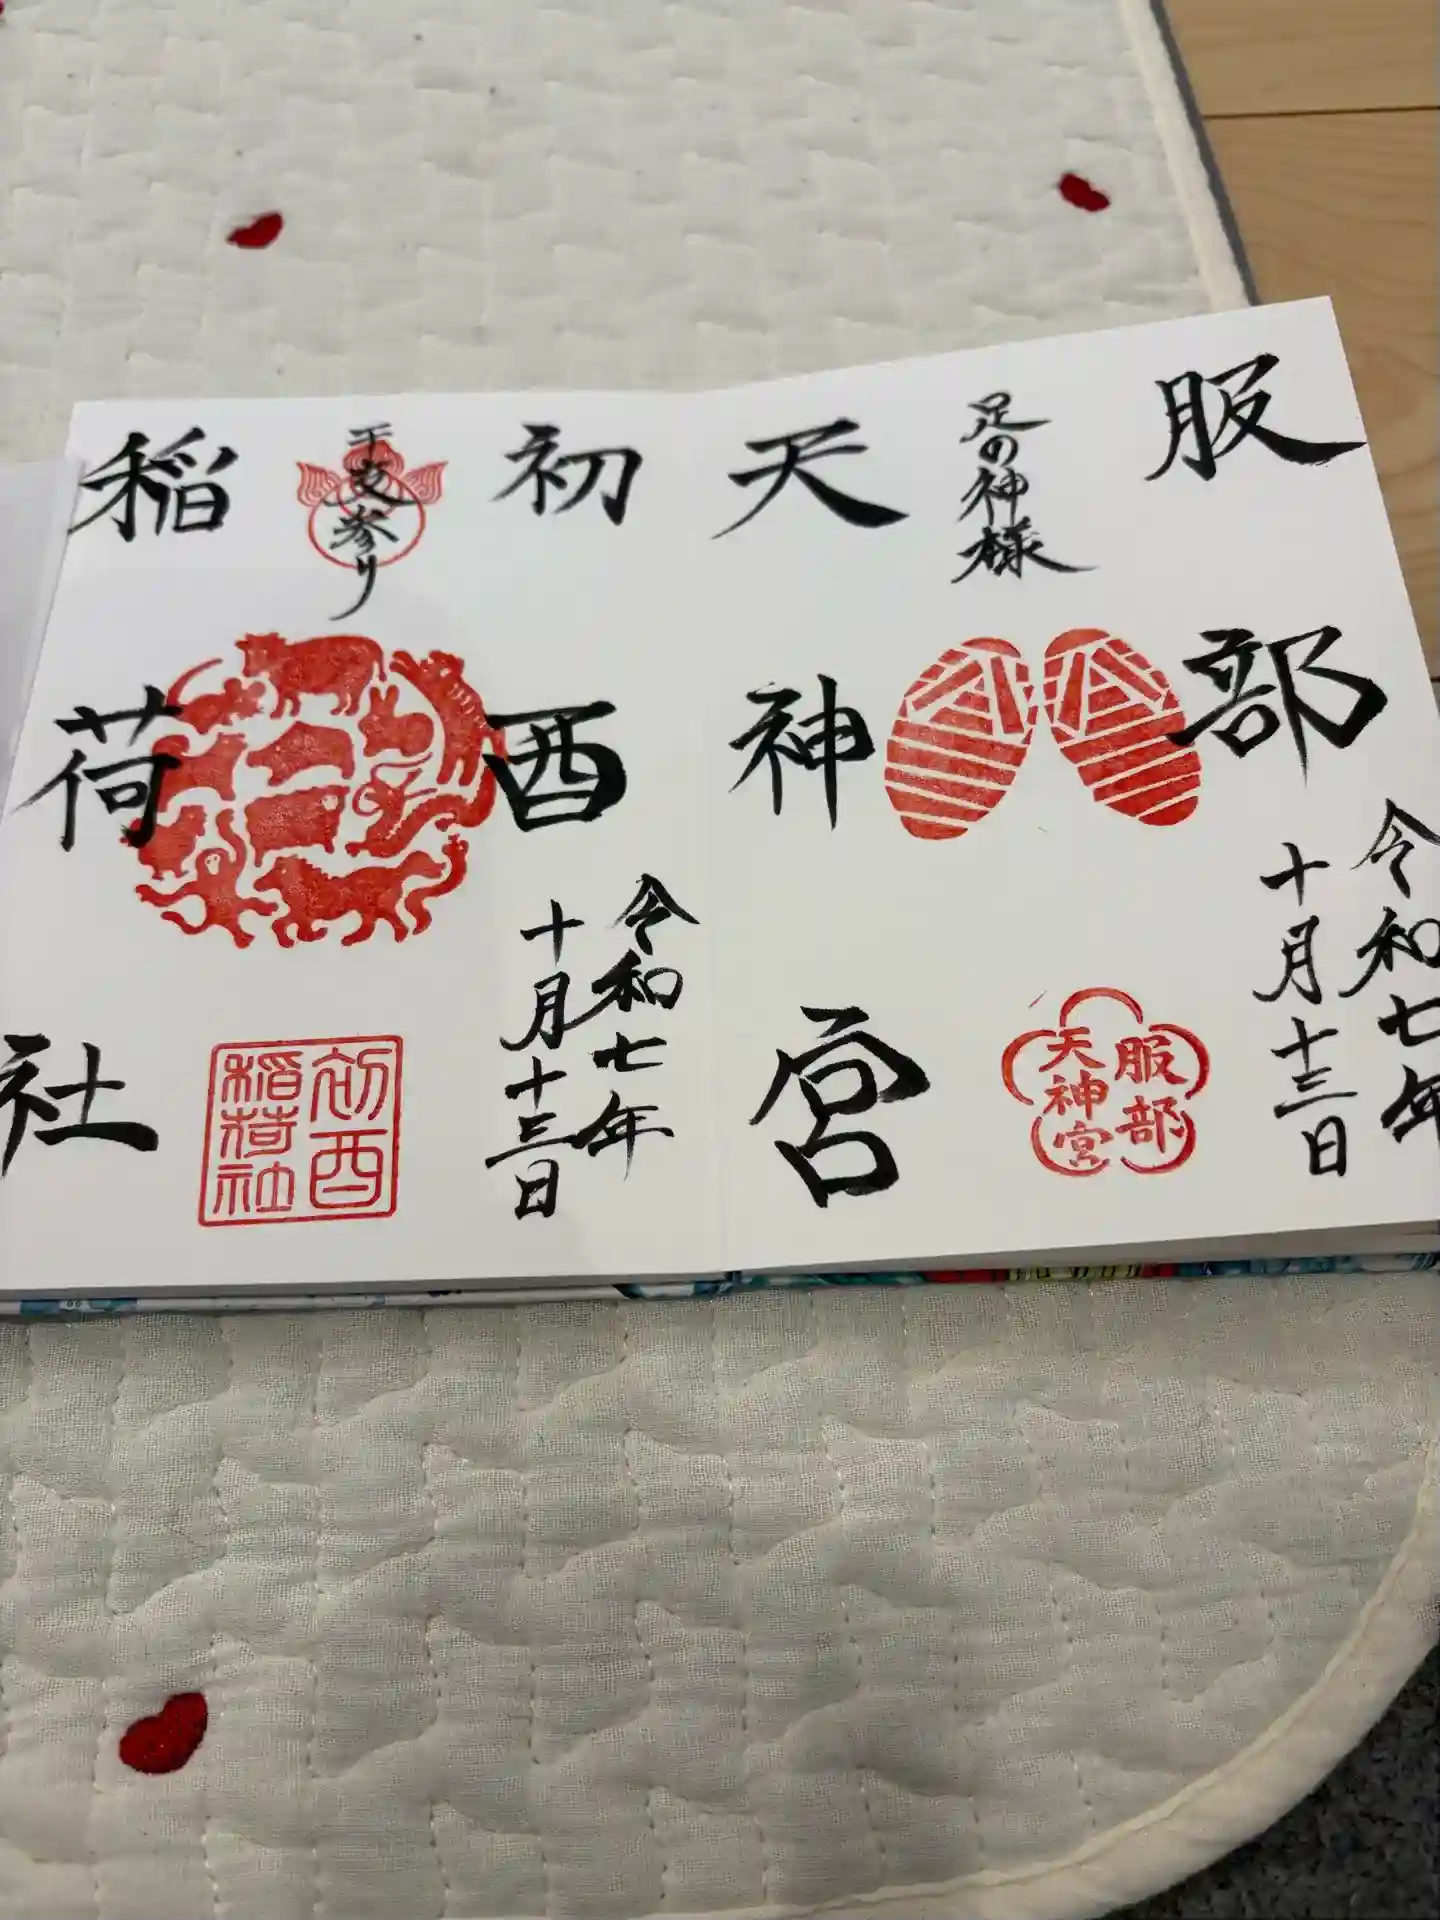 服部
足の神様
天神宮
令和七年
十月十三日
服部
天神宮
初酉
干支参り
稲荷社
令和七年
十月十三日
初酉
稲荷社